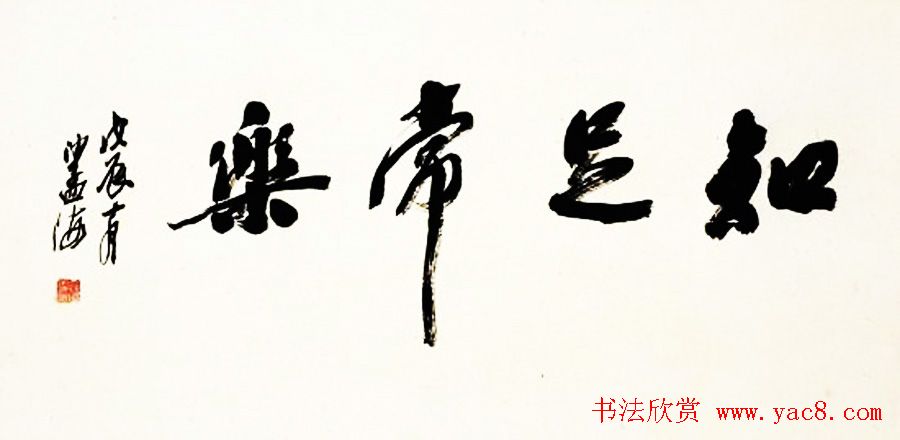 知足常樂
戊辰十月
沙孟海
书法欣赏 www.yac8.com